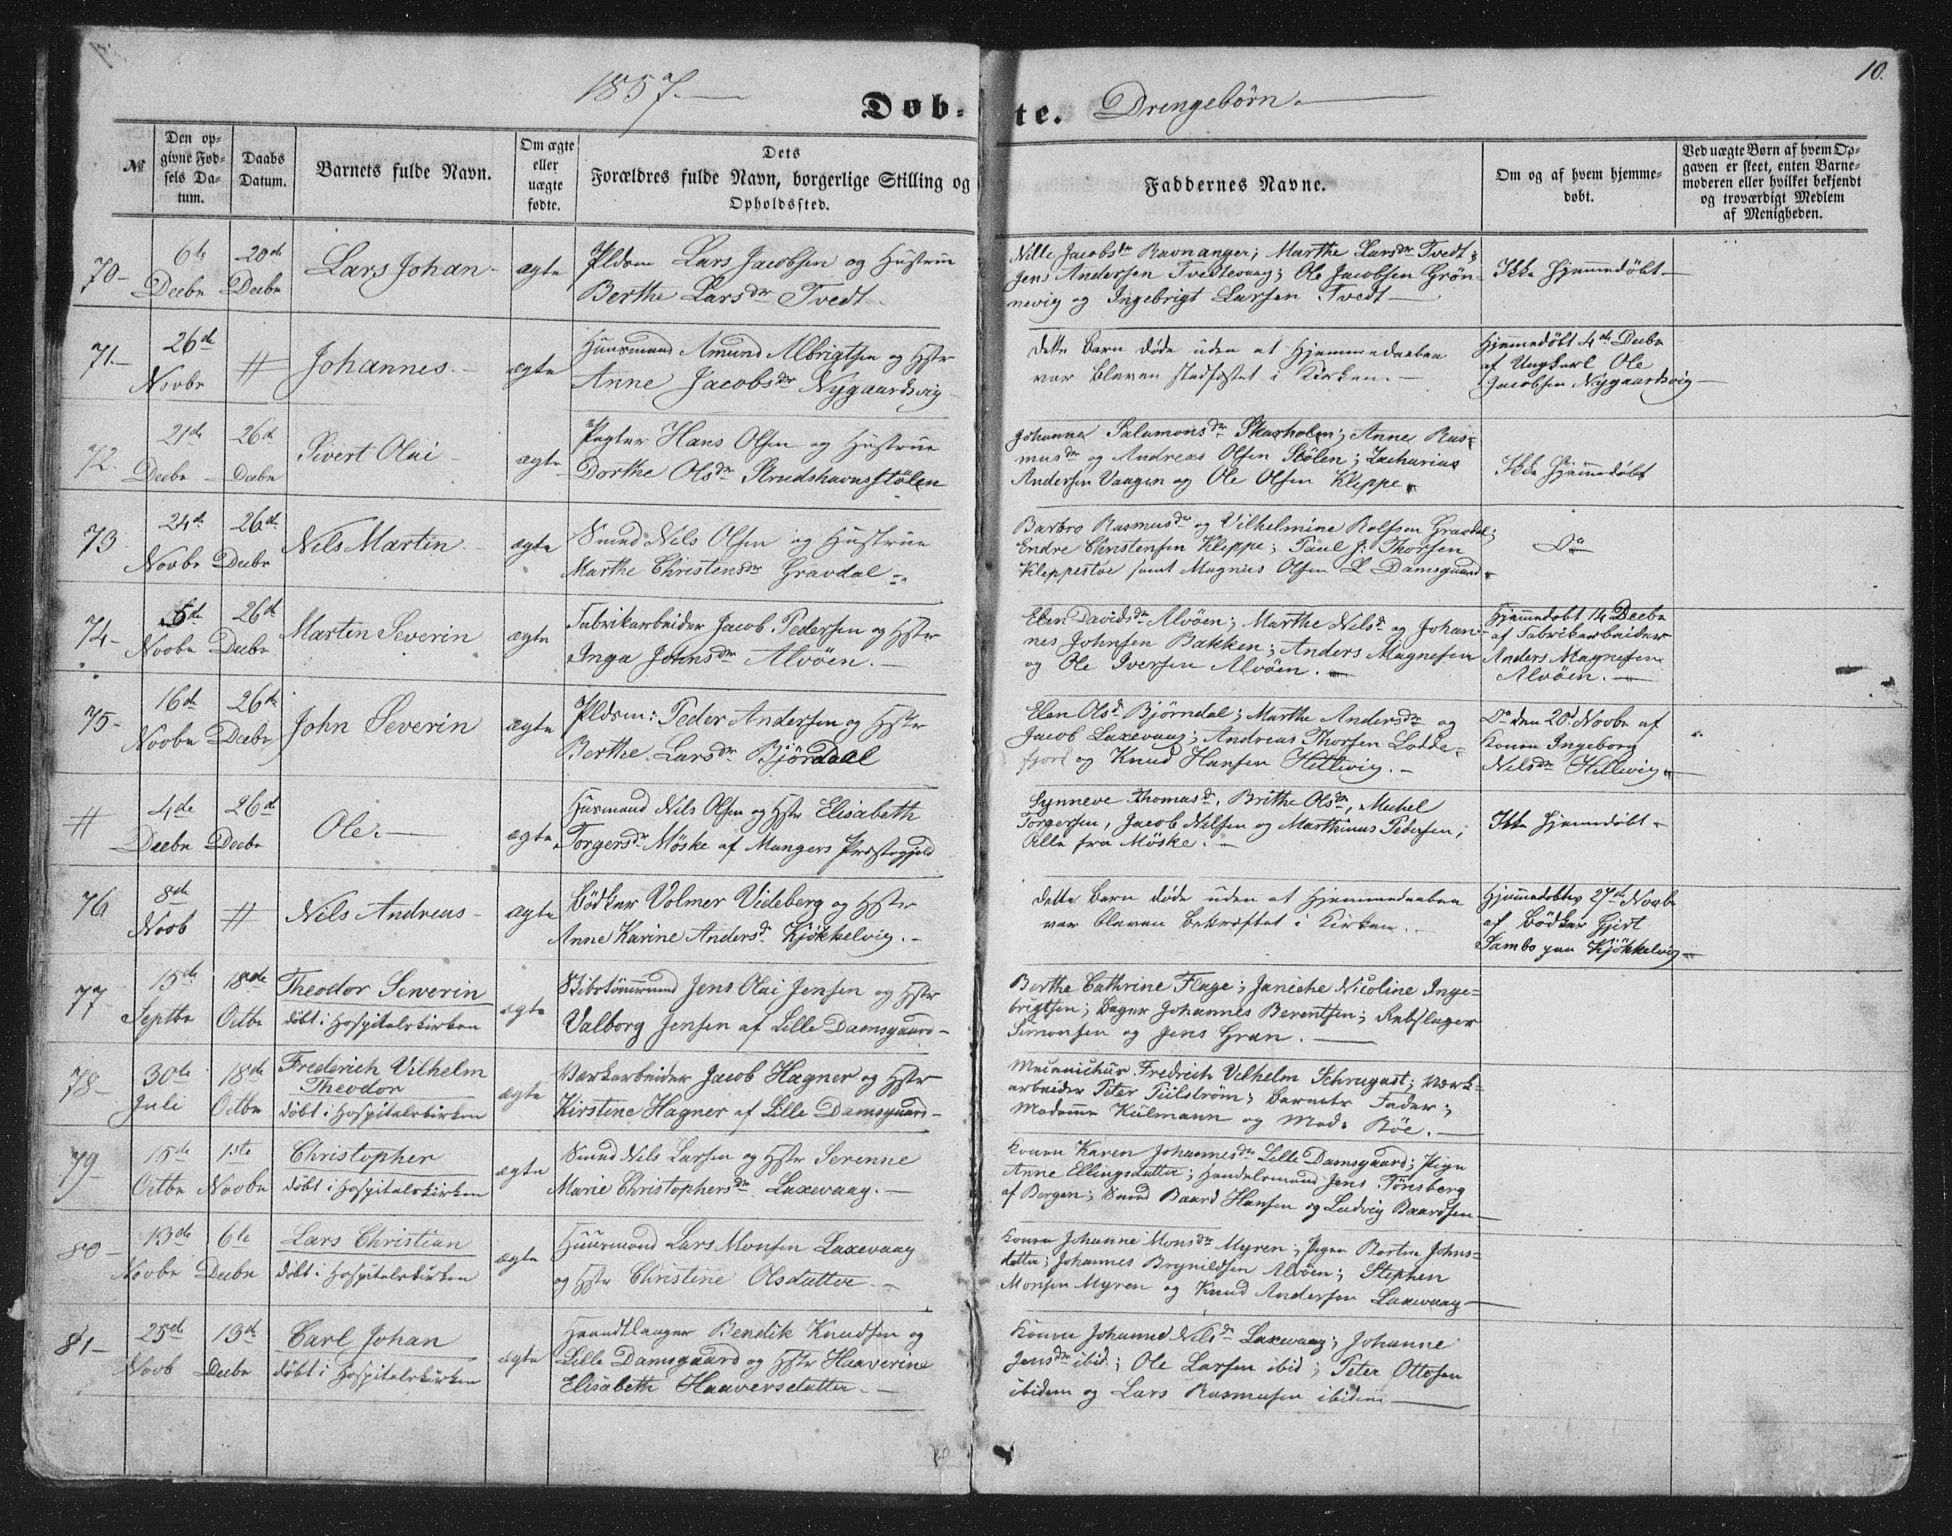 10.
1857.
Døb-te. Drengebørn.
№
Den opgivne Fødsels Datum.
Daabs Datum.
Barnets fulde Navn.
Om ægte eller uægte fødte.
Dets Forældres fulde Navn, borgerlige Stilling og Opholdssted.
Faddernes Navne.
Om og af hvem hjemmedøbt.
Ved uægte Børn af hvem Opgaven er skeet, enten Barnemoderen eller hvilket bekjendt og troværdigt Medlem af Menigheden.
70 6te Decbr 20de Decbr Lars Johan ægte
Pldsm Lars Jacobsen og Hustrue
Berthe Larsdr Tvedt
Nille Jacobsdr Ravnanger; Marthe Larsdr Tvedt;
Jens Andersen Tvedtevaag; Ole Jacobsen Grøn-
nevig og Ingebrigt Larsen Tvedt
Ikke Hjemmedøbt
71 26de Novbr # Johannes ægte
Huusmand Amund Albrigtsen og Hstr
Anne Jacobsdr Nygaardsvig
Dette Barn døde uden at Hjemmedaaben
var bleven stadfæstet i Kirken.
Hjemmedøbt 4de Decbr
af Ungkarl Ole
Jacobsen Nygaardsvig
72 21de Decbr 26de Decbr Sivert Olai ægte
Pagter Hans Olsen og Hustrue
Dorthe Olsdr Strudshavnsstølen
Johanne Salamonsdr Skarholm; Anne Ras-
musdr og Andreas Olsen Stølen; Zacharias
Andersen Vaagen og Ole Olsen Kleppe.
Ikke Hjemmedøbt
73 24de Novbr 26de Decbr Nils Martin ægte
Smed Nils Olsen og Hustrue
Marthe Christensdr Gravdal
Barbro Rasmusdr og Vilhelmine Rolfsen Gravdal;
Endre Christensen Kleppe; Paul J: Thorsen
Kleppestøe samt Magnus Olsen L Damsgaard
Do
74 5te Novbr 26de Decbr Martin Severin ægte
Fabrikarbeider Jacob Pedersen og Hstr
Inga Johnsdr Alvøen.
Elen Davidsdr Alvøen; Marthe Nilsdr og Johan-
nes Johnsen Bakken; Anders Magnesen
og Ole Iversen Alvøen.
Hjemmedøbt 14 Decbr
af Fabrikarbeider
Anders Magnesen
Alvøen.
75 16de Novbr 26de Decbr John Severin ægte
Pldsm: Peder Andersen og Hstr
Berthe Larsdr Bjørndal
Elen Olsd Bjørndal; Marthe Andersdr og
Jacob Laxevaag; Andreas Thorsen Lodde-
fjord og Knud Hansen Hetlevig.
Do den 20d Novbr af
Konen Ingeborg
Nilsdr Hetlevig
# 4de Decbr 26de Decbr Ole ægte
Husmand Nils Olsen og Hstr Elisabeth
Torgersdr Møske af Mangers Præstegjeld
Synneve Thomasdr, Brithe Olsdr, Mikel
Torgersen, Jacob Nilsen og Marthinus Pedersen,
Alle fra Møske.
Ikke Hjemmedøbt
76 8de Novb # Nils Andreas ægte
Bødker Volmer Videberg og Hstr
Anne Karine Andersd Kjøkkelvig.
Dette Barn døde uden at Hjemmedaaben
var bleven bekræftet i Kirken.
Hjemmedøbt 27de Novbr
af Bødker Gjert
Sambo paa Kjøkkelvig
77 15de Septbr 18de Octbr Theodor Severin
døbt i Hospitalskirken ægte
Skibstømmermand Jens Olai Jensen og Hstr
Valborg Jensen af Lille Damsgaard
Berthe Cathrine Flage; Janiche Nicoline Inge-
brigtsen; Bager Johannes Berentsen; Rebslager
Simonsen og Jens Gran.
78 30te Juli 18de Octbr Frederich Vilhelm
Theodor
døbt i Hospitalskirken ægte
Værkarbeider Jacob Hagner og Hstr
Kirstene Hagner af Lille Damsgaard
Mecanichus Fredrich Vilhelm Schrugast; Værk-
arbeider Peter Piilstrøm; Barnets Fader;
Madame Kulmann og Mad. Bøe.
79 15de Octbr 1ste Novbr Christopher
døbt i Hospitalskirken ægte
Smed Nils Larsen og Hstr Serenne
Marie Christophersdr Laxevaag.
Konen Karen Johannesdr Lille Damsgaard; Pige
Anne Ellingsdatter; Handelsmand Jens Tønsberg
af Bergen; Smed Baard Hansen og Ludvig Baardsen
80 13de Novbr 6te Decbr Lars Christian
døbt i Hospitalskirken ægte
Huusmand Lars Monsen Laxevaag
og Hstr Christine Olsdatter.
Konen Johanne Monsdr Myren; Pigen Bertha Johns-
datter; Johannes Brynildsen Alvøen; Stephen
Monsen Myren og Knud Andersen Laxevaag
81 25de Novb 13de Decbr Carl Johan
døbt i Hospitalskirken ægte
Haandtlanger Bendik Knudsen og
Lille Damsgaard og Hstr Haaverine
Elisabeth Haaversdatter.
Konen Johanne Nilsdr Laxevaag; Johanne
Jensdr ibid; Ole Larsen ibid; Peter Ottosen
ibidem og Lars Rasmusen ibidem